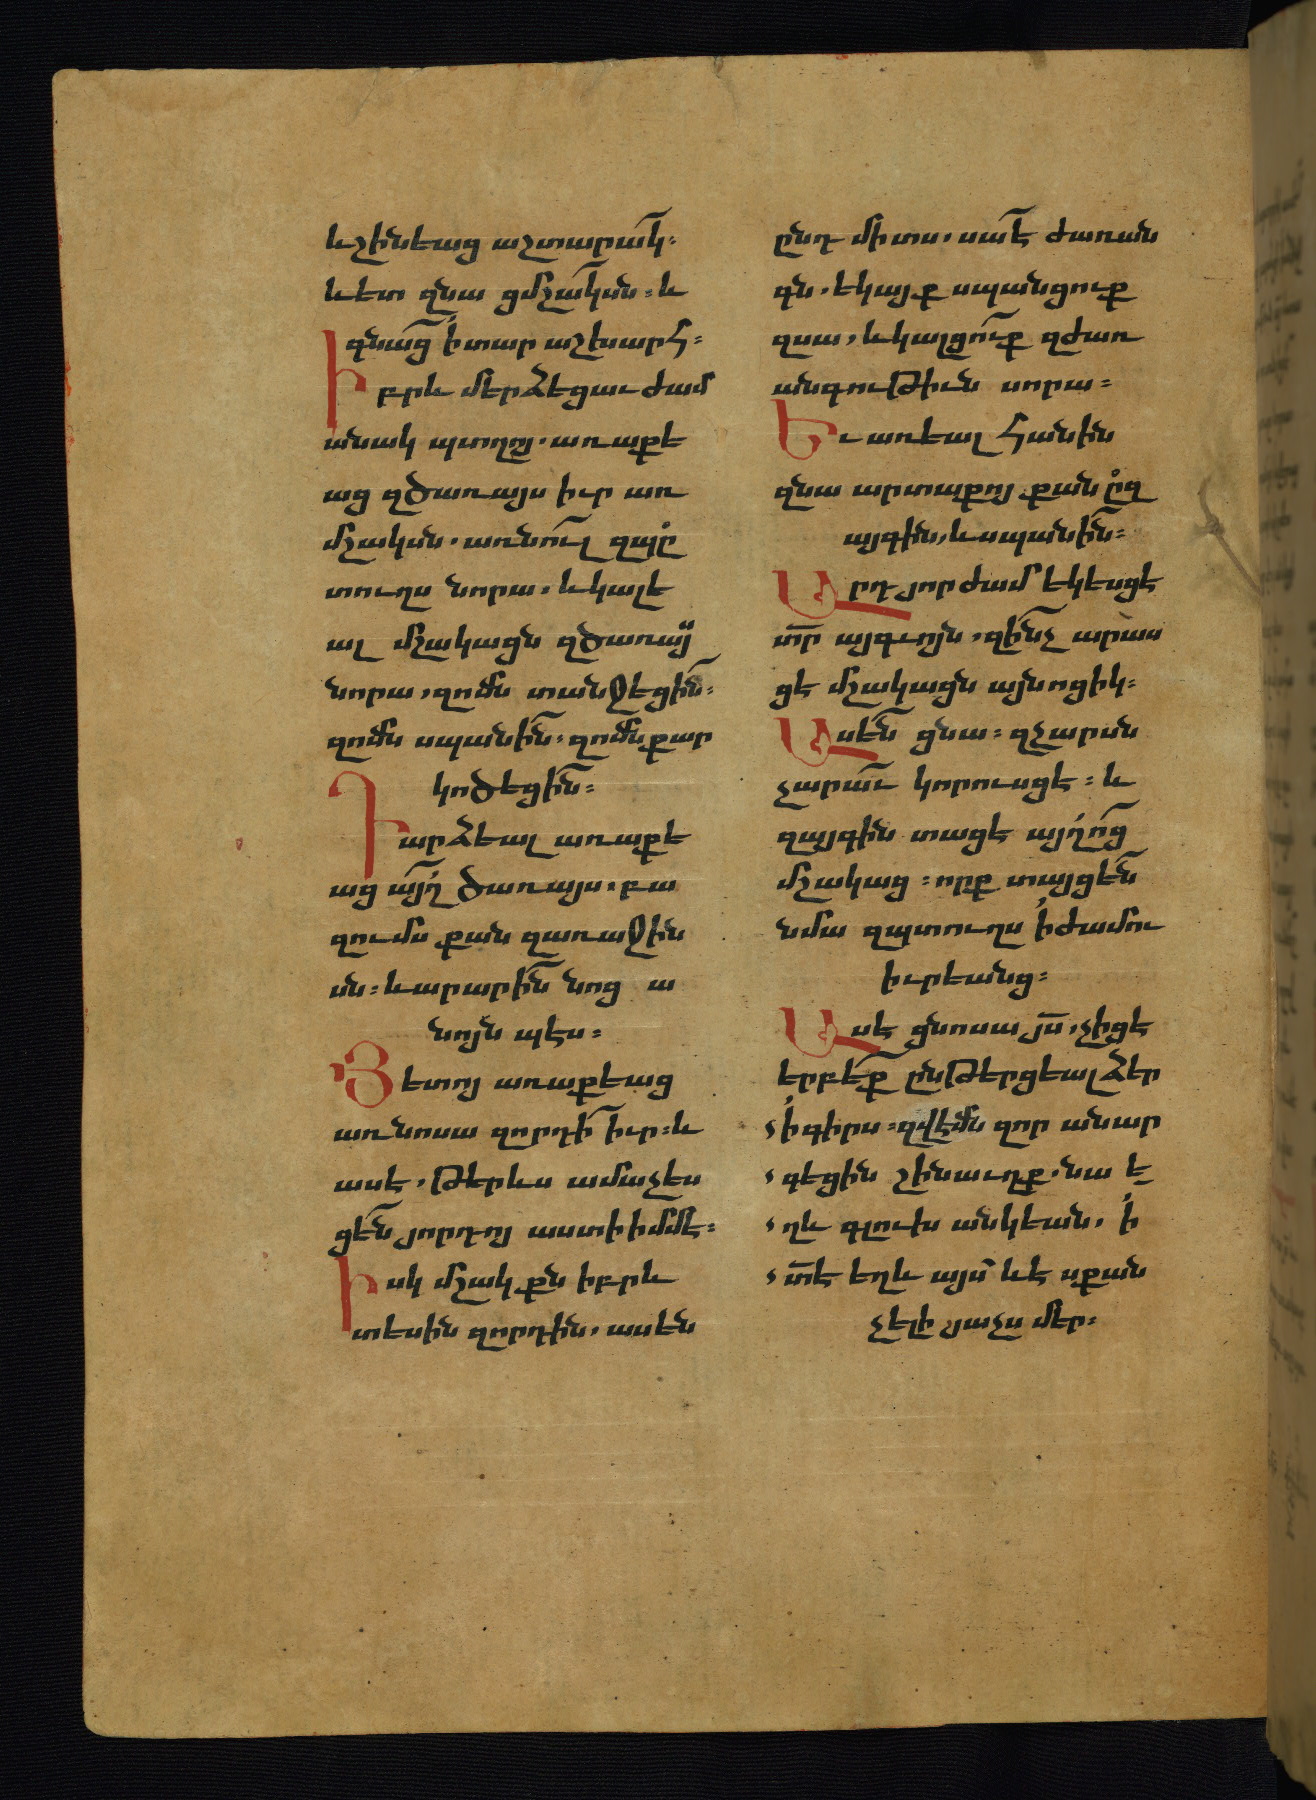 և շինեաց աշտարակ։
և ետ զնա ցմշակսն։ և
գնաց ի տար աշխարհ։
Իբրև մերձեցաւ ժամ
անակ պտղոյ. առաքե
աց զծառայս իւր առ
մշակսն. առնուլ զպ
տուղս նորա. և կալե
ալ մշակացն զծառայս
նորա, զոմն տանջեցին։
զոմն սպանին։ զոմն քար
կոծեցին։
Դարձեալ առաքե
աց այլ ծառայս. բա
զումս քան զառաջին
սն։ և արարին նոց ա
նոյն պէս։
Յետոյ առաքեաց
առ նոսա զորդի իւր։ և
ասէ. Թերևս ամաչես
ցեն յորդոյ աստի իմմէ։
Իսկ մշակքն իբրև
տեսին զորդին, ասեն
ընդ միտս. սա է ժառան
գն. եկայք սպանցուք
զսա, և կալցուք զժառ
անգութիւն սորա։
Եւ առեալ հանին
զնա արտաքոյ քան զ
այգին, և սպանին։
Արդ յորժամ եկեսցէ
տր այգւոյն, զինչ արաս
ցէ մշակացն այնոցիկ։
Ասեն ցնա։ զչարսն
չարաւ կորուսցէ։ և
զայգին տացէ այլոց
մշակաց։ որք տայցեն
նմա զպտուղս ի ժամու
իւրեանց։
Ասէ ցնոսա յս, չիցէ
երբեք ընթերցեալ ձեր
ի գիրս։ զվէմն զոր անար
գեցին շինաւղք. նա ե
ղև գլուխ անկեան, ի
տէ եղև այս և է սքան
չելի յաչս մեր։